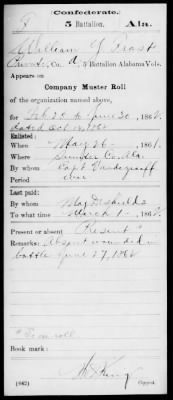 Confederate.
5 Battalion, Ala.
William J.
Private, Co. A, 5 Battalion Alabama Vols.
Appears on
Company Muster Roll
of the organization named above,
for Feb 28 to June 30, 186
dated Oct
Enlisted:
When May 26, 1861.
Where Sumter Co. Ala.
By whom Capt. Vandegraaff
Period War
Last paid:
By whom Maj.
To what time March 1, 186
Present or absent Present *
Remarks: Absent wounded in
battle June 27, 1862
* on roll
Book mark:
(642) Copyist.